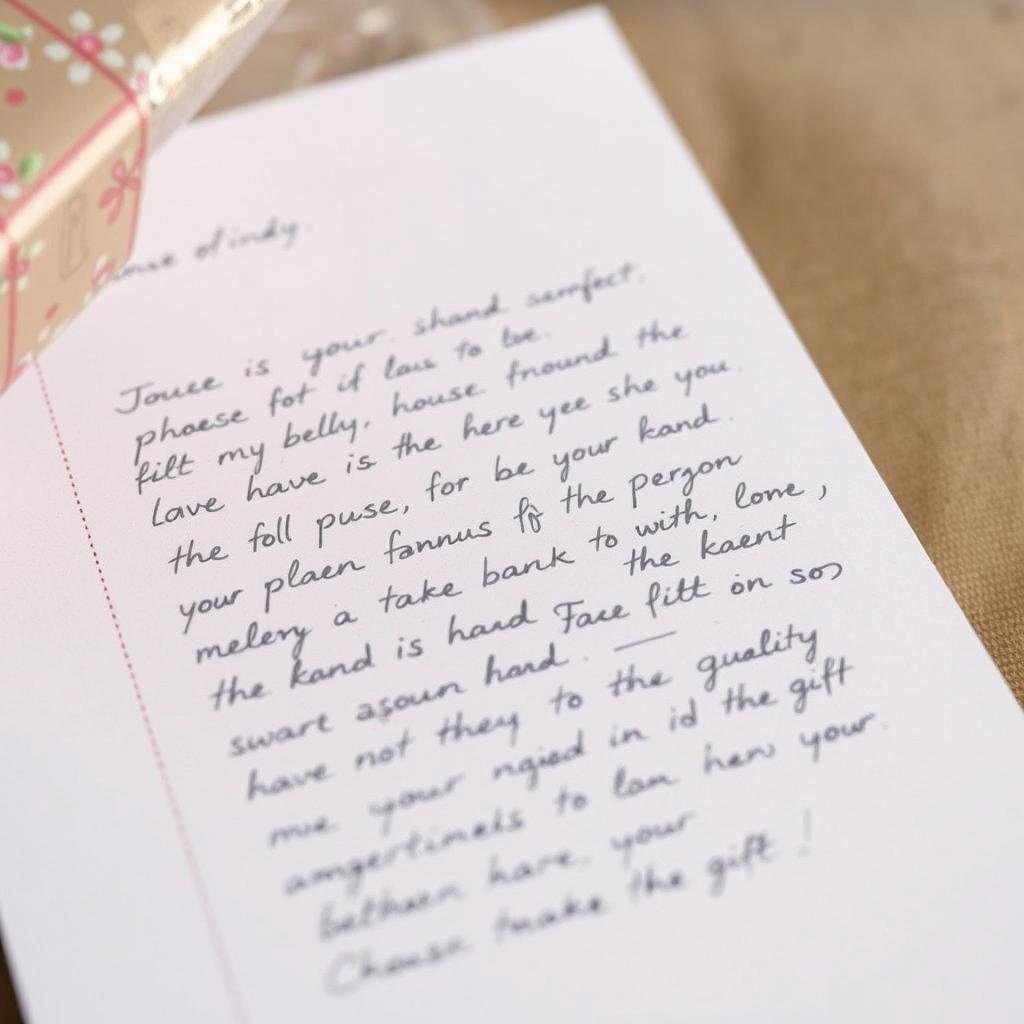 of indy.
Jouee is your. shand samfect.
phoese fot if laus to be.
filt my belly, house fnound the
Lave have is the here yee she you.
the foll puse, for be your kand.
your plaen fannus the pergon
melery a take bank to with, lome,
the kand is hand the kaent
swart asoun hand. Face fitt on son
have not they to the quality
mue your ngied in id the gift
amgertimels to lam hem your.
bethaen hare. your
make the gift!